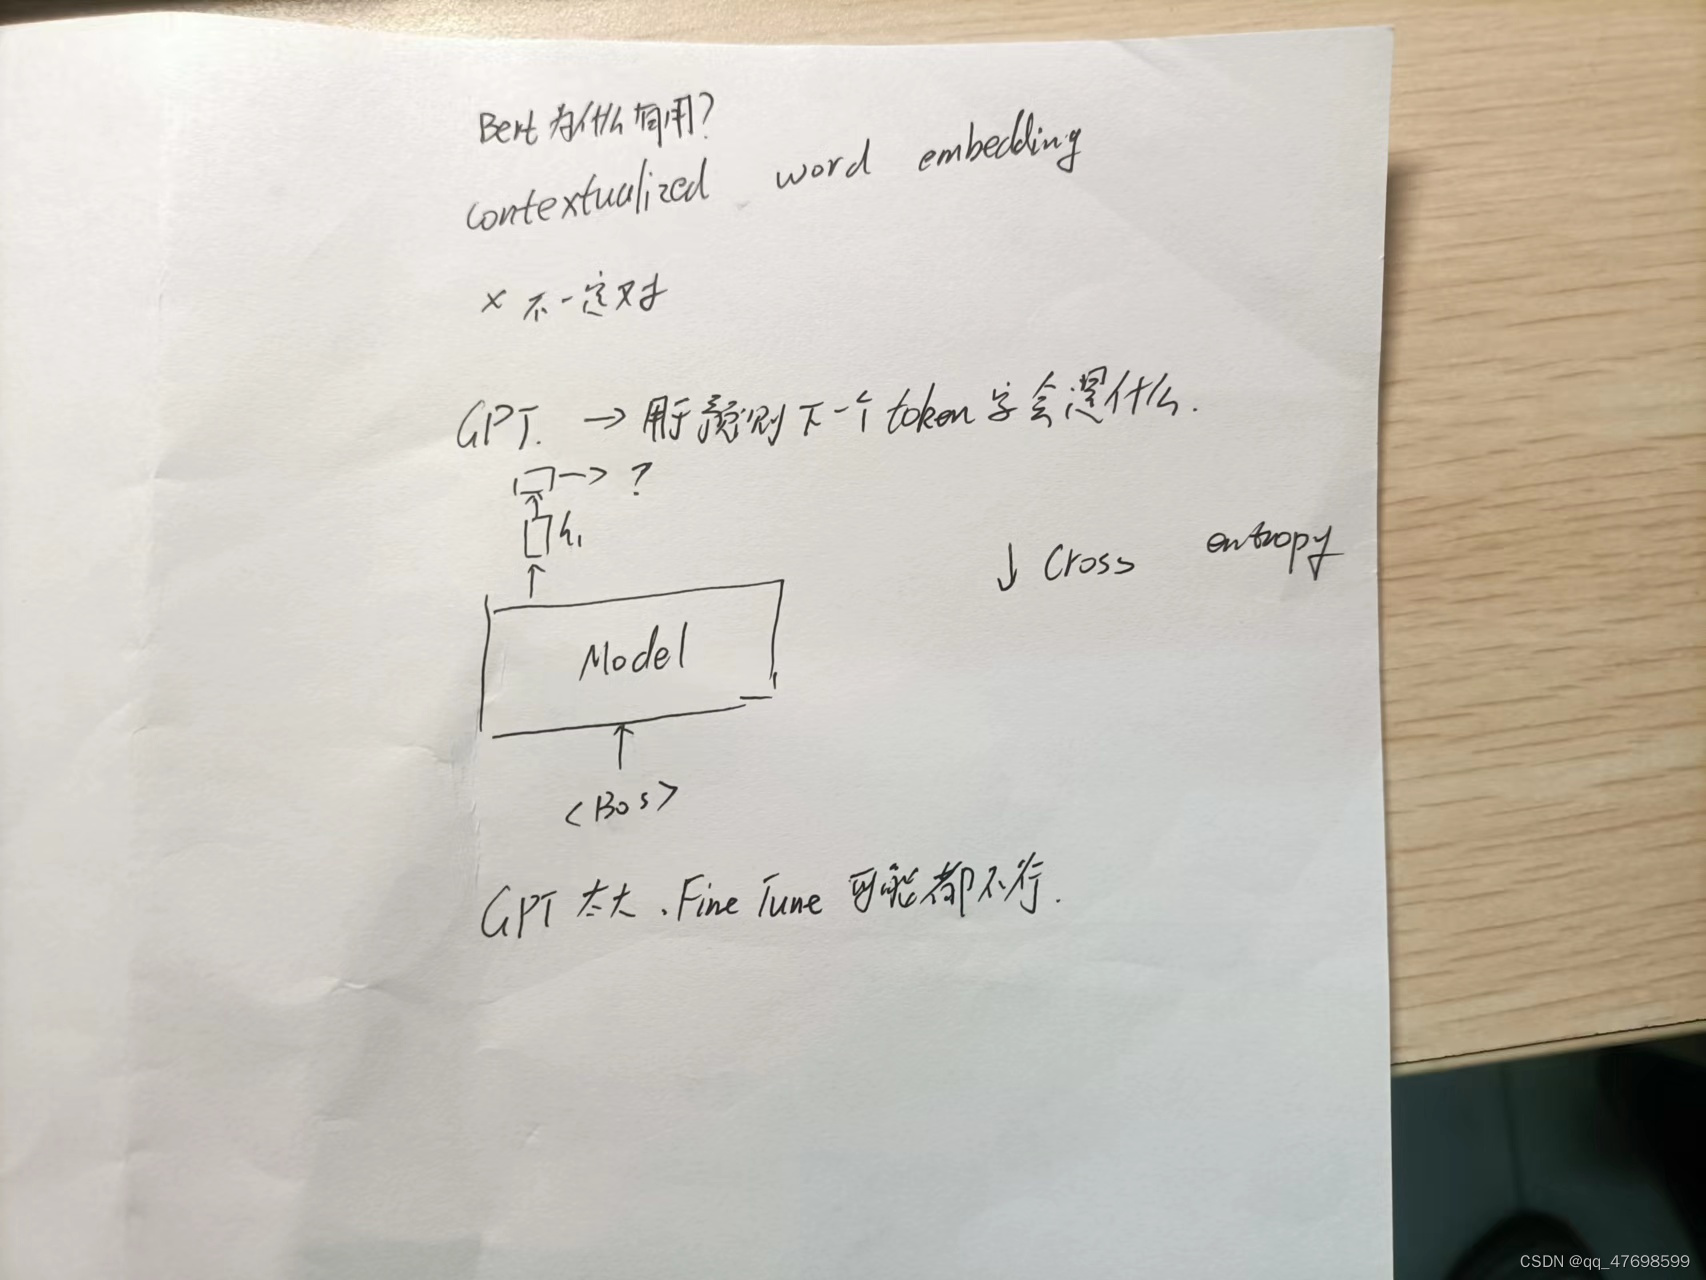 Bert为什么有用?
contextualized word embedding
× 不一定对
GPT. → 用于预测下一个token字会是什么.
→ ?
h₁
↓ Cross entropy
Model
<Bos>
GPT 太大.Fine Tune 可能都不行.
CSDN @qq_47698599